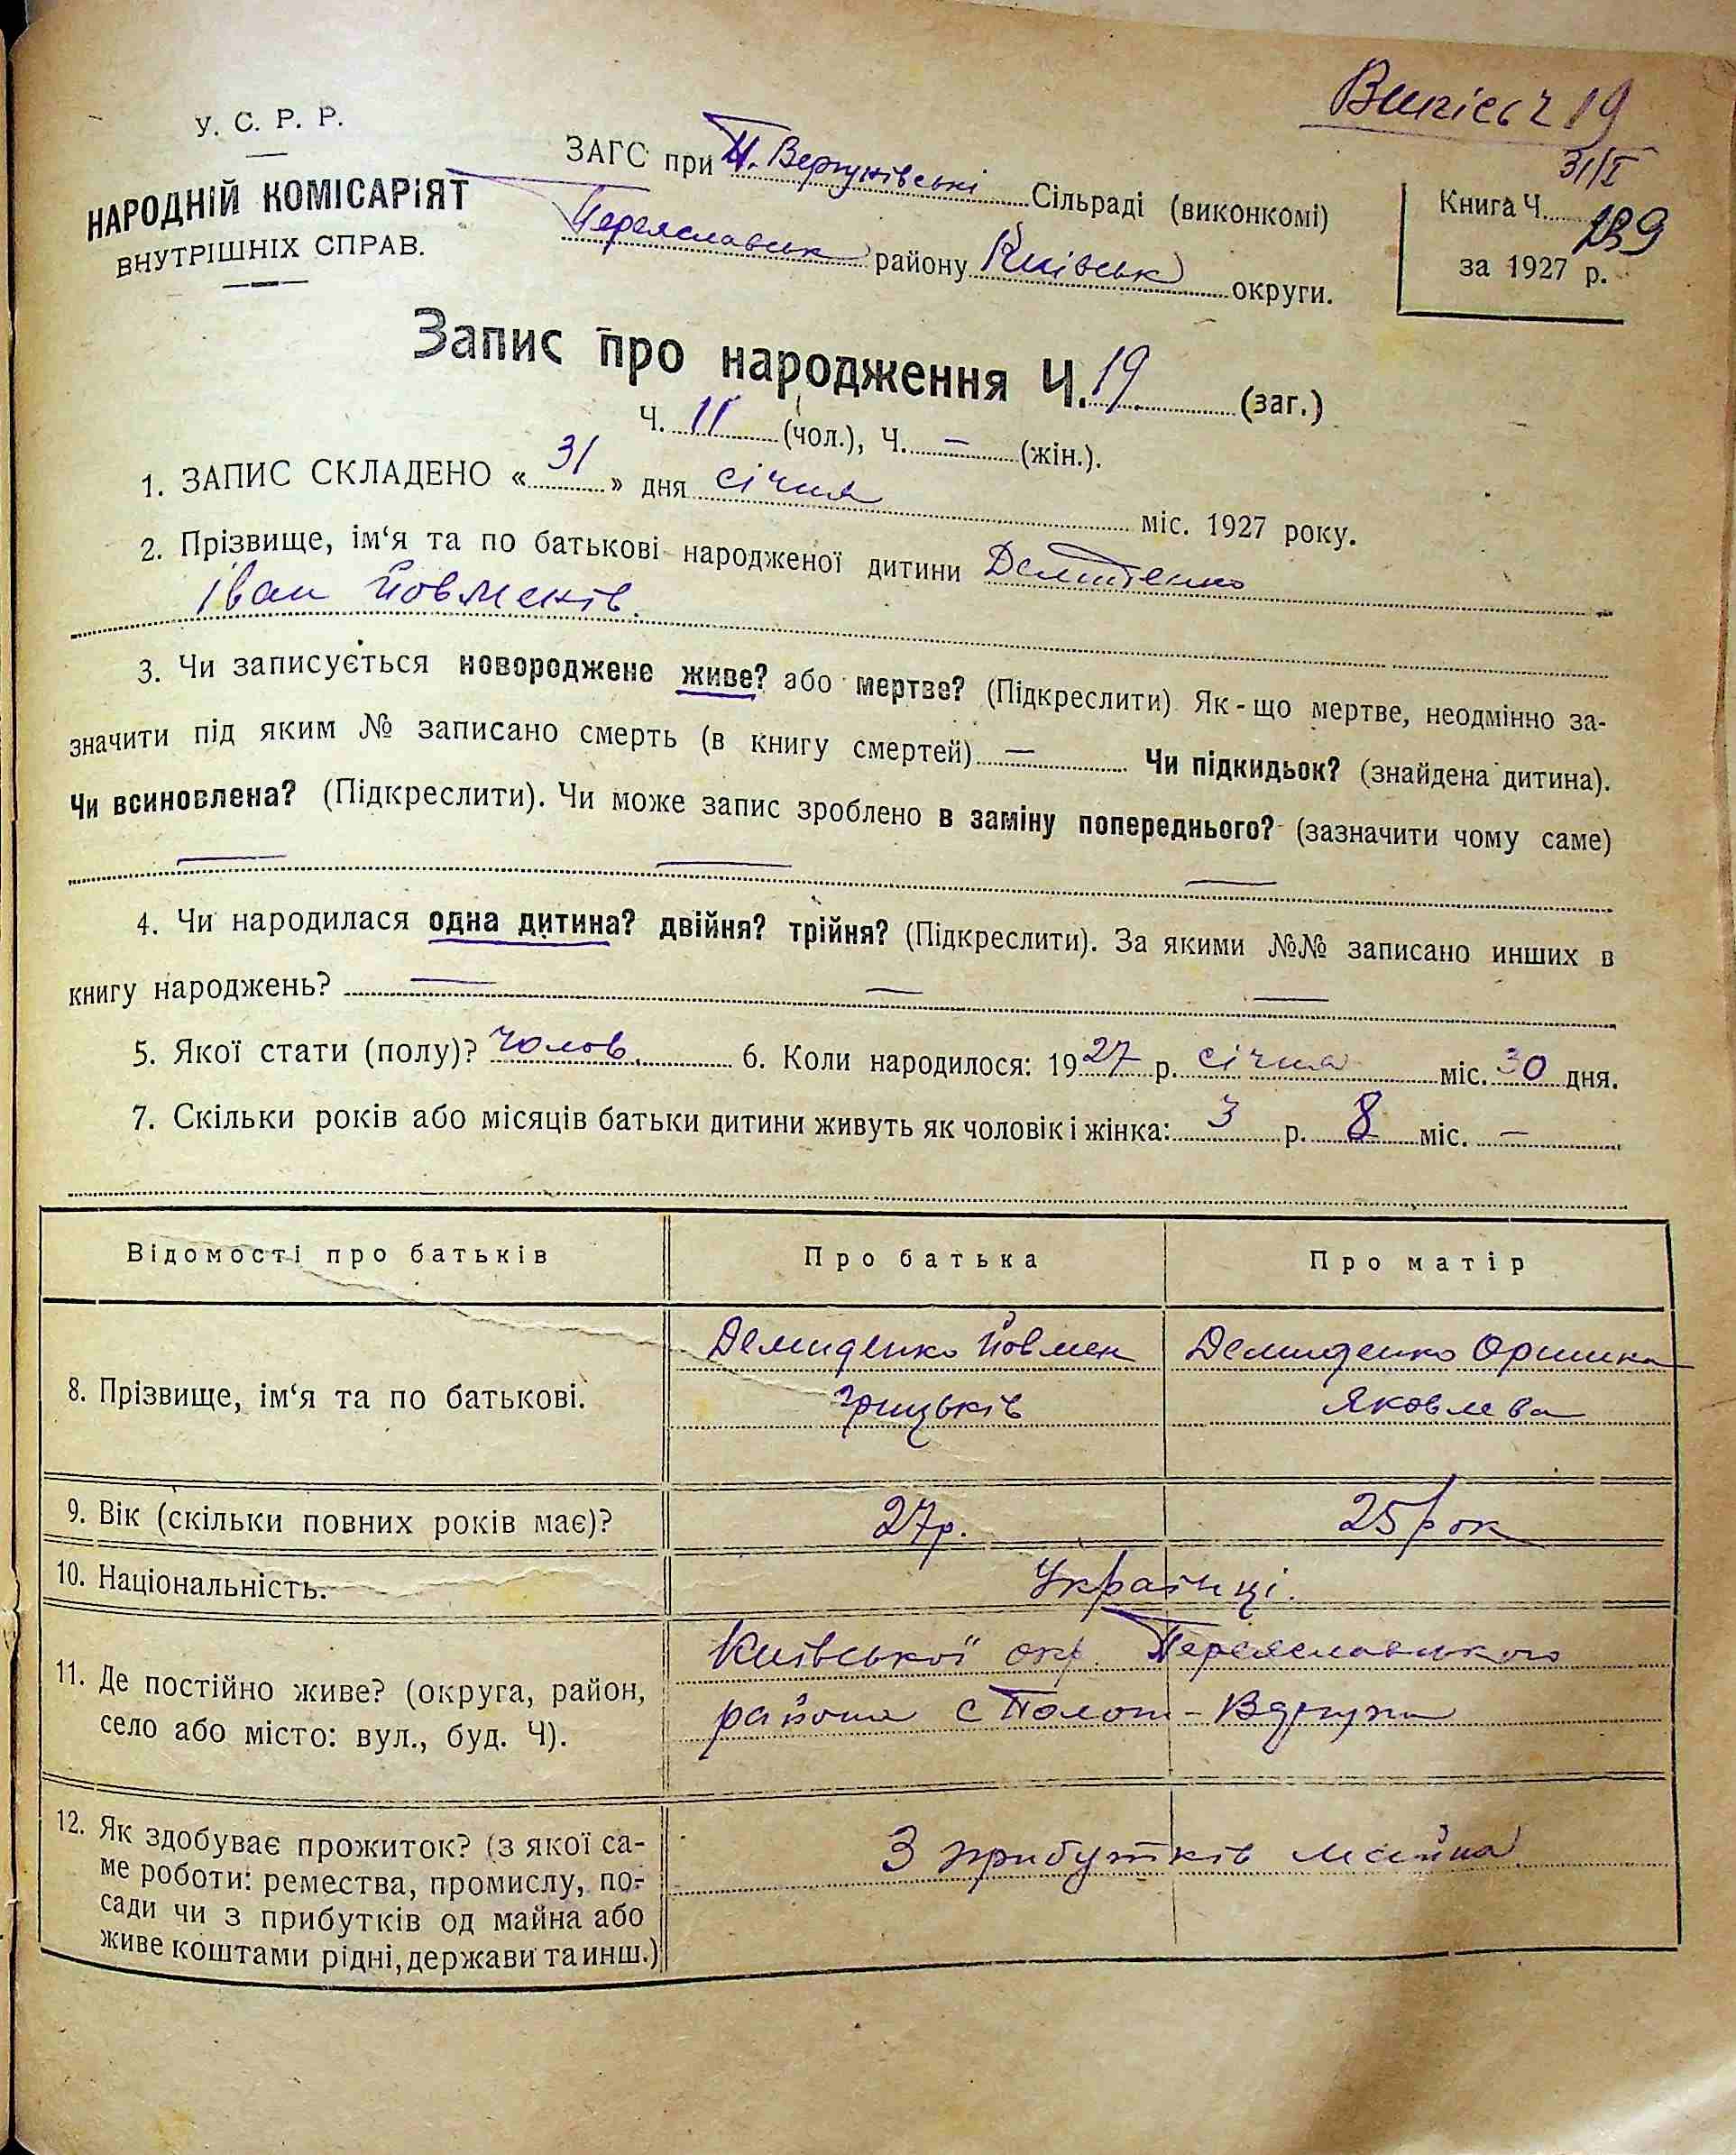 Випісь ч 19
31/I
У. С. Р. Р.
НАРОДНІЙ КОМІСАРІЯТ
ВНУТРІШНІХ СПРАВ.
ЗАГС при П. Вергунівські Сільраді (виконкомі)
Переяславськ району Київськ округи.
Книга Ч. 139
за 1927 р.
Запис про народження Ч. 19 (заг.)
Ч. 11 (чол.), Ч. — (жін.).
1. ЗАПИС СКЛАДЕНО « 31 » дня січня міс. 1927 року.
2. Прізвище, ім‘я та по батькові народженої дитини Демиденко
Іван Йовменів.
3. Чи записується новороджене живе? або мертве? (Підкреслити) Як-що мертве, неодмінно за-
значити під яким № записано смерть (в книгу смертей) — Чи підкидьок? (знайдена дитина).
Чи всиновлена? (Підкреслити). Чи може запис зроблено в заміну попереднього? (зазначити чому саме)
— — —
4. Чи народилася одна дитина? двійня? трійня? (Підкреслити). За якими №№ записано инших в
книгу народжень? — — —
5. Якої стати (полу)? Чолов. 6. Коли народилося: 1927 р. січня міс. 30 дня.
7. Скільки років або місяців батьки дитини живуть як чоловік і жінка: 3 р. 8 міс. —
Відомості про батьків
Про батька
Про матір
8. Прізвище, ім‘я та по батькові.
Демиденко Йовмен
Грицьків
Демиденко Оришка
Яковлева
9. Вік (скільки повних років має)?
27р.
25 рок
10. Національність.
Українці.
11. Де постійно живе? (округа, район,
село або місто: вул., буд. Ч).
Київської окр. Переяславського
района с Полог-Вергуни
12. Як здобуває прожиток? (з якої са-
ме роботи: ремества, промислу, по-
сади чи з прибутків од майна або
живе коштами рідні, держави та инш.)
З прибутків майна